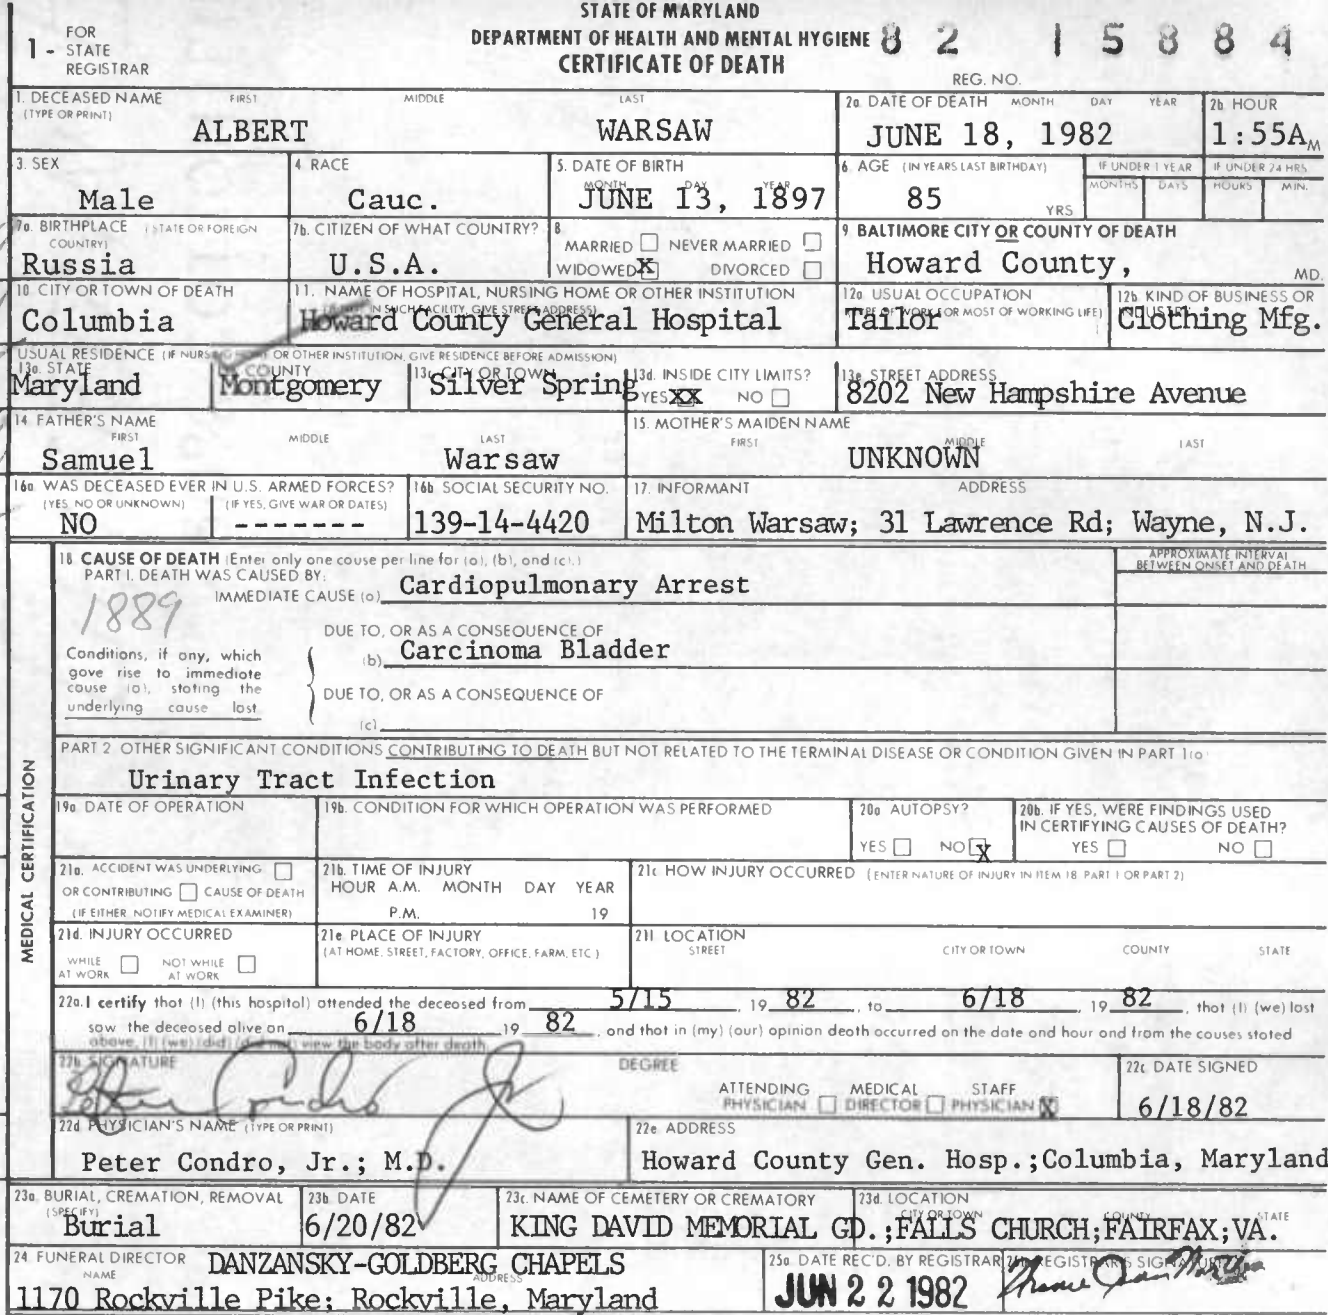 STATE OF MARYLAND
1 - FOR STATE REGISTRAR
DEPARTMENT OF HEALTH AND MENTAL HYGIENE 82 15884
CERTIFICATE OF DEATH
REG. NO.
1. DECEASED NAME (TYPE OR PRINT) FIRST MIDDLE LAST
ALBERT WARSAW
2a. DATE OF DEATH MONTH DAY YEAR
JUNE 18, 1982
2b. HOUR
1:55A M
3. SEX
Male
4. RACE
Cauc.
5. DATE OF BIRTH MONTH DAY YEAR
JUNE 13, 1897
6. AGE (IN YEARS LAST BIRTHDAY)
85 YRS
IF UNDER 1 YEAR MONTHS DAYS
IF UNDER 24 HRS. HOURS MIN.
7a. BIRTHPLACE (STATE OR FOREIGN COUNTRY)
Russia
7b. CITIZEN OF WHAT COUNTRY?
U.S.A.
8. MARRIED NEVER MARRIED
WIDOWED X DIVORCED
9. BALTIMORE CITY OR COUNTY OF DEATH
Howard County, MD.
10. CITY OR TOWN OF DEATH
Columbia
11. NAME OF HOSPITAL, NURSING HOME OR OTHER INSTITUTION
(IF NOT IN SUCH FACILITY, GIVE STREET ADDRESS)
Howard County General Hospital
12a. USUAL OCCUPATION
(TYPE OF WORK FOR MOST OF WORKING LIFE)
Tailor
12b. KIND OF BUSINESS OR INDUSTRY
Clothing Mfg.
USUAL RESIDENCE (IF NURSING HOME OR OTHER INSTITUTION, GIVE RESIDENCE BEFORE ADMISSION)
13a. STATE
Maryland
COUNTY
Montgomery
13c. CITY OR TOWN
Silver Spring
13d. INSIDE CITY LIMITS?
YES XX NO
13e. STREET ADDRESS
8202 New Hampshire Avenue
14. FATHER'S NAME FIRST MIDDLE LAST
Samuel Warsaw
15. MOTHER'S MAIDEN NAME FIRST MIDDLE LAST
UNKNOWN
16a. WAS DECEASED EVER IN U.S. ARMED FORCES?
(YES, NO OR UNKNOWN) (IF YES, GIVE WAR OR DATES)
NO -------
16b. SOCIAL SECURITY NO.
139-14-4420
17. INFORMANT ADDRESS
Milton Warsaw; 31 Lawrence Rd; Wayne, N.J.
MEDICAL CERTIFICATION
18. CAUSE OF DEATH (Enter only one cause per line for (a), (b), and (c).)
APPROXIMATE INTERVAL BETWEEN ONSET AND DEATH
PART I. DEATH WAS CAUSED BY:
IMMEDIATE CAUSE (a) Cardiopulmonary Arrest
1889
DUE TO, OR AS A CONSEQUENCE OF
(b) Carcinoma Bladder
Conditions, if any, which gave rise to immediate cause (a), stating the underlying cause last
DUE TO, OR AS A CONSEQUENCE OF
(c)
PART 2. OTHER SIGNIFICANT CONDITIONS CONTRIBUTING TO DEATH BUT NOT RELATED TO THE TERMINAL DISEASE OR CONDITION GIVEN IN PART 1(a)
Urinary Tract Infection
19a. DATE OF OPERATION
19b. CONDITION FOR WHICH OPERATION WAS PERFORMED
20a. AUTOPSY?
YES NO X
20b. IF YES, WERE FINDINGS USED IN CERTIFYING CAUSES OF DEATH?
YES NO
21a. ACCIDENT WAS UNDERLYING
OR CONTRIBUTING CAUSE OF DEATH
(IF EITHER, NOTIFY MEDICAL EXAMINER)
21b. TIME OF INJURY
HOUR A.M. MONTH DAY YEAR
P.M. 19
21c. HOW INJURY OCCURRED (ENTER NATURE OF INJURY IN ITEM 18 PART 1 OR PART 2)
21d. INJURY OCCURRED
WHILE AT WORK NOT WHILE AT WORK
21e. PLACE OF INJURY
(AT HOME, STREET, FACTORY, OFFICE, FARM, ETC.)
21f. LOCATION
STREET CITY OR TOWN COUNTY STATE
22a. I certify that (I) (this hospital) attended the deceased from 5/15 19 82, to 6/18 19 82, that (I) (we) last
saw the deceased alive on 6/18 19 82, and that in (my) (our) opinion death occurred on the date and hour and from the causes stated
above, (I) (we) (did) (did not) view the body after death
22b. SIGNATURE
Peter Condro Jr
DEGREE
ATTENDING PHYSICIAN MEDICAL DIRECTOR STAFF PHYSICIAN X
22c. DATE SIGNED
6/18/82
22d. PHYSICIAN'S NAME (TYPE OR PRINT)
Peter Condro, Jr.; M.D.
22e. ADDRESS
Howard County Gen. Hosp.;Columbia, Maryland
23a. BURIAL, CREMATION, REMOVAL (SPECIFY)
Burial
23b. DATE
6/20/82
23c. NAME OF CEMETERY OR CREMATORY
KING DAVID MEMORIAL GD.;
23d. LOCATION CITY OR TOWN COUNTY STATE
FALLS CHURCH;FAIRFAX;VA.
24. FUNERAL DIRECTOR NAME
DANZANSKY-GOLDBERG CHAPELS
ADDRESS
1170 Rockville Pike; Rockville, Maryland
25a. DATE REC'D. BY REGISTRAR
JUN 22 1982
25b. REGISTRAR'S SIGNATURE